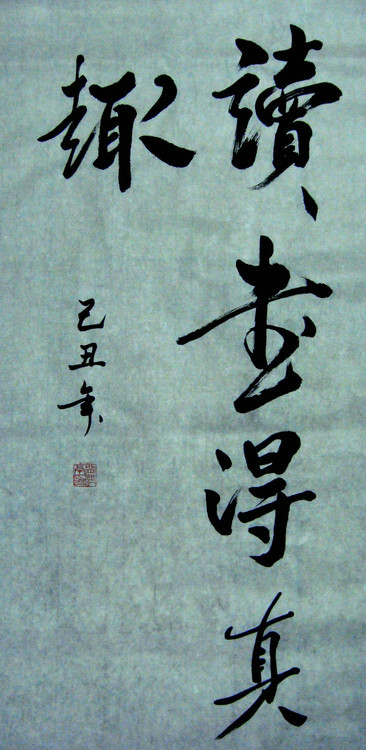 讀書得真
趣
己丑年